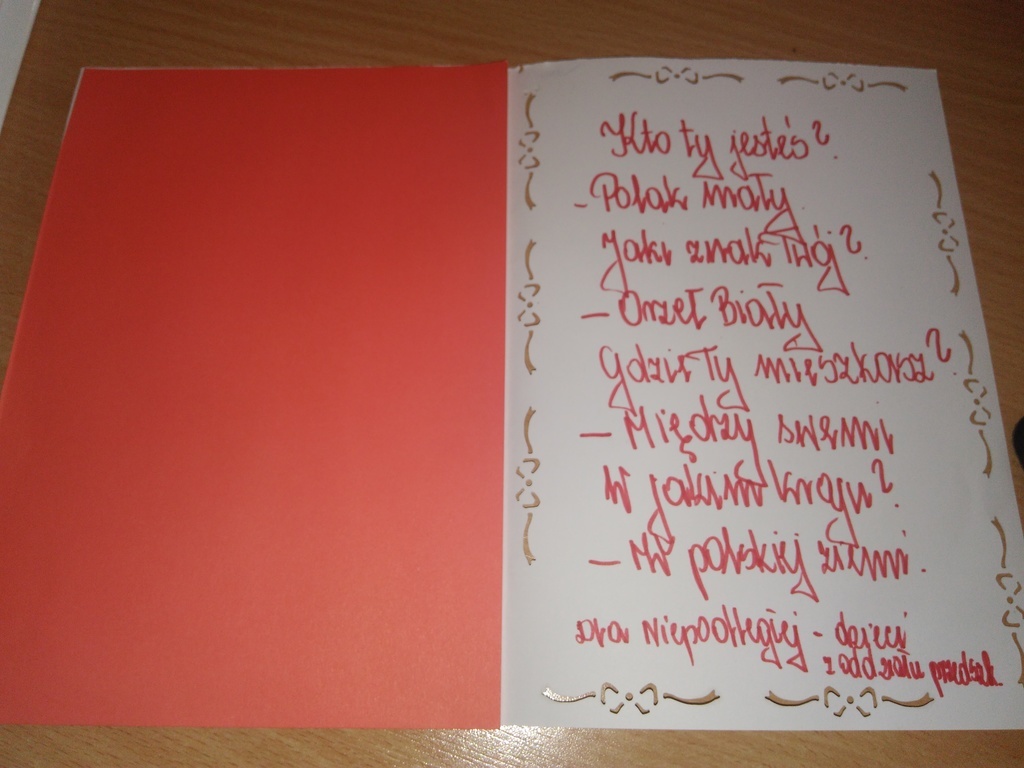 Kto ty jesteś?
- Polak mały
Jaki znak Twój?
- Orzeł Biały
Gdzie Ty mieszkasz?
- Między swemi
W jakim kraju?
- W polskiej ziemi.
Dla Niepodległej - dzieci
z oddziału przedszk.